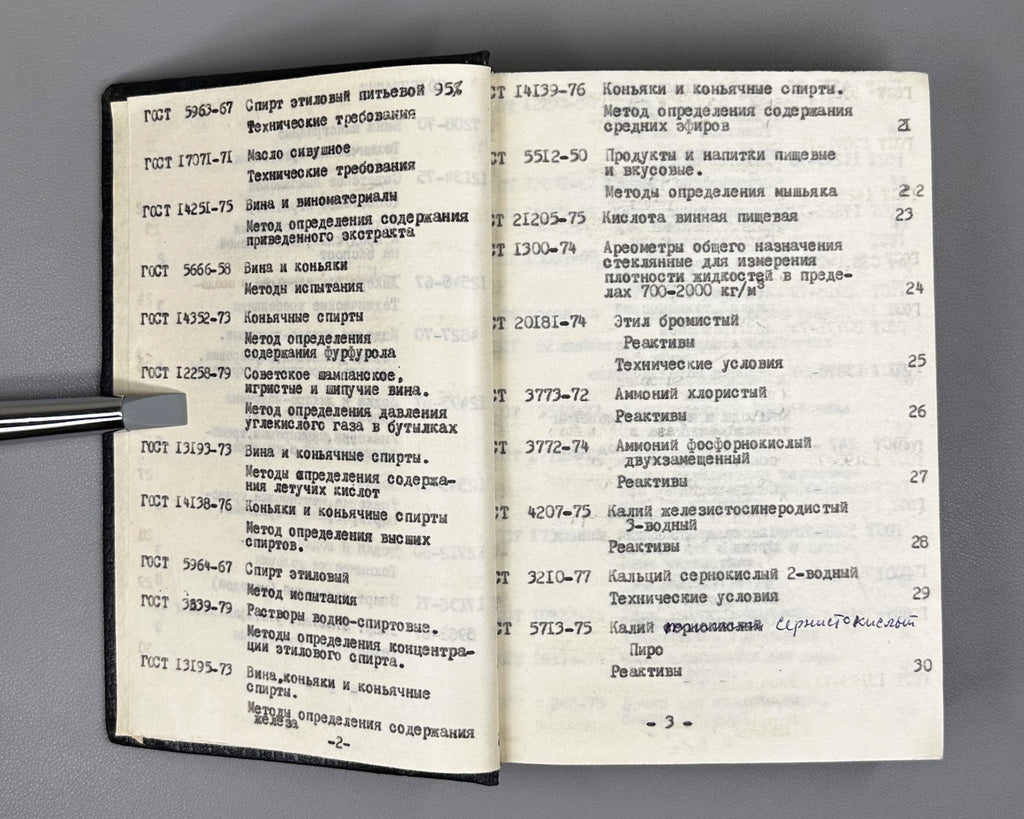 ГОСТ 5963-67 Спирт этиловый питьевой 95%
Технические требования
ГОСТ 17071-71 Масло сивушное
Технические требования
ГОСТ 14251-75 Вина и виноматериалы
Метод определения содержания
приведенного экстракта
ГОСТ 5666-58 Вина и коньяки
Методы испытания
ГОСТ 14352-73 Коньячные спирты
Метод определения
содержания фурфурола
ГОСТ 12258-79 Советское шампанское,
игристые и шипучие вина.
Метод определения давления
углекислого газа в бутылках
ГОСТ 13193-73 Вина и коньячные спирты.
Методы определения содержа-
ния летучих кислот
ГОСТ 14138-76 Коньяки и коньячные спирты
Метод определения высших
спиртов.
ГОСТ 5964-67 Спирт этиловый
Метод испытания
ГОСТ 3639-79 Растворы водно-спиртовые.
Методы определения концентра-
ции этилового спирта.
ГОСТ 13195-73 Вина, коньяки и коньячные
спирты.
Методы определения содержания
железа
-2-
СТ 14139-76 Коньяки и коньячные спирты.
Метод определения содержания
средних эфиров 21
СТ 5512-50 Продукты и напитки пищевые
и вкусовые.
Методы определения мышьяка 22
СТ 21205-75 Кислота винная пищевая 23
СТ 1300-74 Ареометры общего назначения
стеклянные для измерения
плотности жидкостей в преде-
лах 700-2000 кг/м³ 24
СТ 20181-74 Этил бромистый
Реактивы
Технические условия 25
СТ 3773-72 Аммоний хлористый
Реактивы 26
СТ 3772-74 Аммоний фосфорнокислый
двухзамещенный
Реактивы 27
СТ 4207-75 Калий железистосинеродистый
3-водный
Реактивы 28
СТ 3210-77 Кальций сернокислый 2-водный
Технические условия 29
СТ 5713-75 Калий сернистокислый
Пиро
Реактивы 30
- 3 -